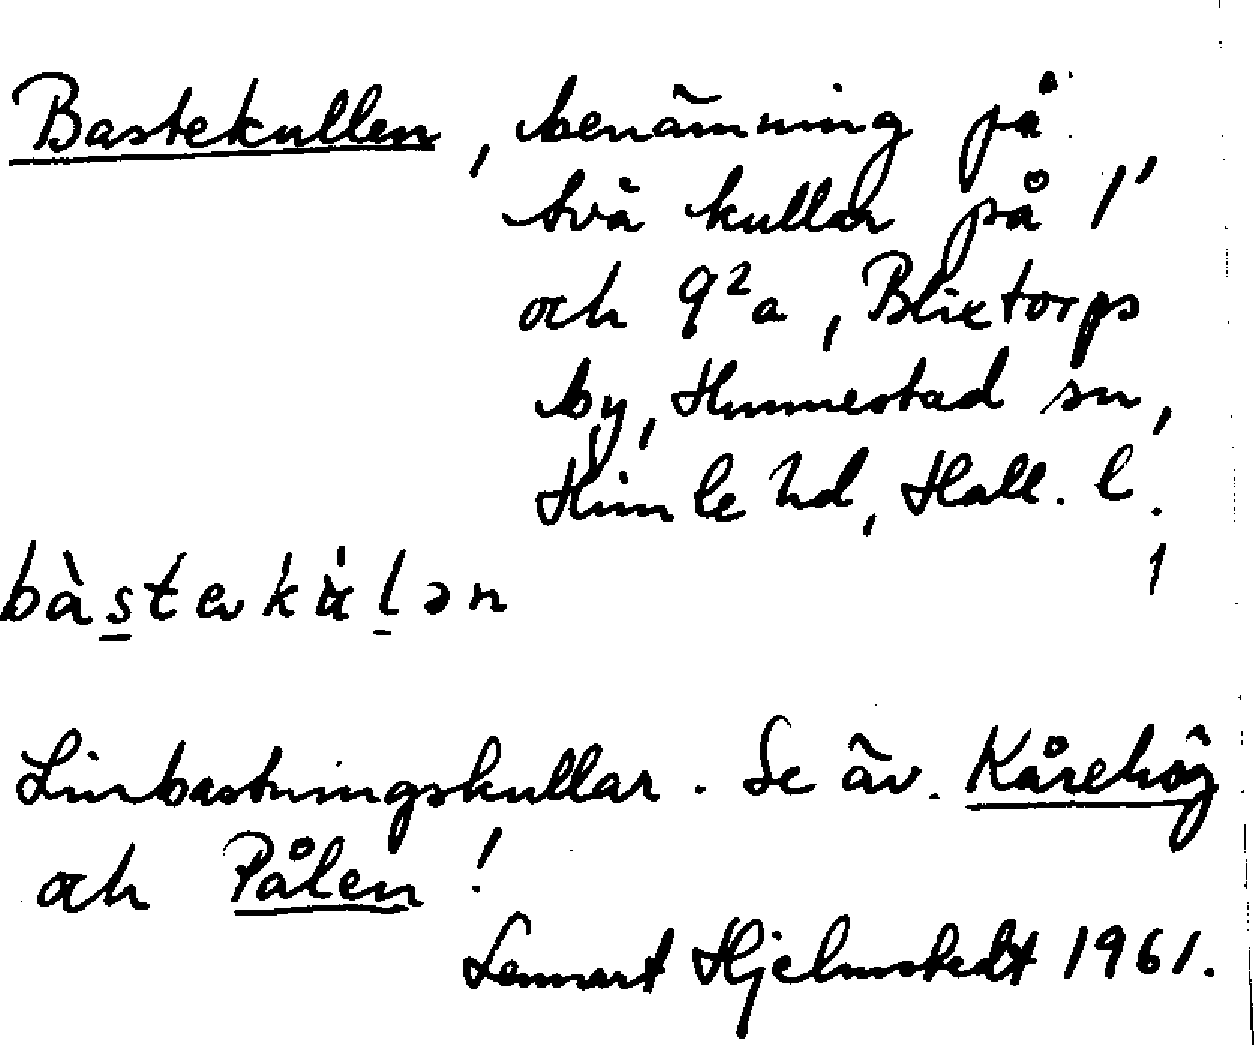 Bastekullen, benämning på
två kullar på 1'
och 9²a, Blixtorps
by, Hunnestad sn,
Himle hd, Hall. l.
Linbastningskullar. Se äv. Kårehög
och Pålen!
Lennart Hjelmstedt 1961.